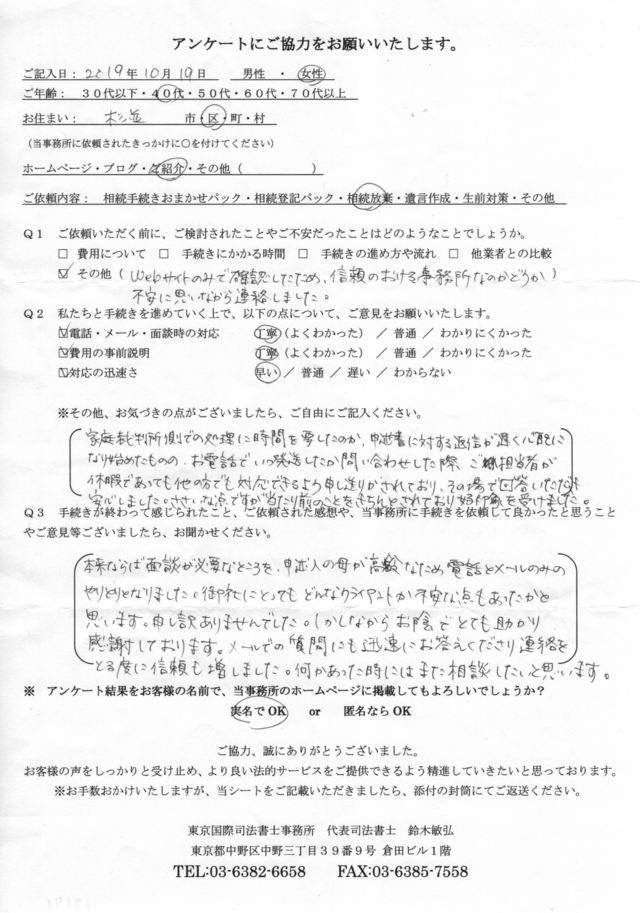 アンケートにご協力をお願いいたします。
ご記入日： 2019年 10月 19日　男性 ・ 女性
ご年齢： ３０代以下・４０代・５０代・６０代・７０代以上
お住まい： 杉並 市・区・町・村
（当事務所に依頼されたきっかけに○を付けてください）
ホームページ・ブログ・ご紹介・その他（　　　）
ご依頼内容： 相続手続きおまかせパック・相続登記パック・相続放棄・遺言作成・生前対策・その他
Ｑ１　ご依頼いただく前に、ご検討されたことやご不安だったことはどのようなことでしょうか。
□ 費用について　□ 手続きにかかる時間　□ 手続きの進め方や流れ　□ 他業者との比較
☑ その他（ Webサイトのみで確認したため、信頼のおける事務所なのかどうか ）
不安に思いながら連絡しました。
Ｑ２　私たちと手続きを進めていく上で、以下の点について、ご意見をお願いいたします。
☑電話・メール・面談時の対応　丁寧（よくわかった） ／ 普通 ／ わかりにくかった
☑費用の事前説明　丁寧（よくわかった） ／ 普通 ／ わかりにくかった
☑対応の迅速さ　早い ／ 普通 ／ 遅い ／ わからない
※その他、お気づきの点がございましたら、ご自由にご記入ください。
家庭裁判所側での処理に時間を要したのか、申述書に対する返信が遅く心配に
なり始めたものの、お電話でいつ発送したか問い合わせした際、ご担当者が
休暇であっても他の方でも対応できるよう申し送りがされており、その場で回答いただけ
安心しました。ささいな点ですが当たり前のことをきちんとされており好印象を受けました。
Ｑ３　手続きが終わって感じられたこと、ご依頼された感想や、当事務所に手続きを依頼して良かったと思うこと
やご意見等ございましたら、お聞かせください。
本来ならば面談が必要なところを、申述人の母が高齢なため電話とメールのみの
やりとりとなりました。御社にとってもどんなクライアントか不安な点もあったかと
思います。申し訳ありませんでした。しかしながらお陰でとても助かり
感謝しております。メールでの質問にも迅速にお答えくださり連絡を
とる度に信頼も増しました。何かあった時にはまた相談したいと思います。
※ アンケート結果をお客様の名前で、当事務所のホームページに掲載してもよろしいでしょうか？
実名でOK　or　匿名ならOK
ご協力、誠にありがとうございました。
お客様の声をしっかりと受け止め、より良い法的サービスをご提供できるよう精進していきたいと思っております。
※お手数おかけいたしますが、当シートをご記載いただきましたら、添付の封筒にてご返送ください。
東京国際司法書士事務所　代表司法書士　鈴木敏弘
東京都中野区中野三丁目３９番９号 倉田ビル１階
TEL:03-6382-6658　FAX:03-6385-7558